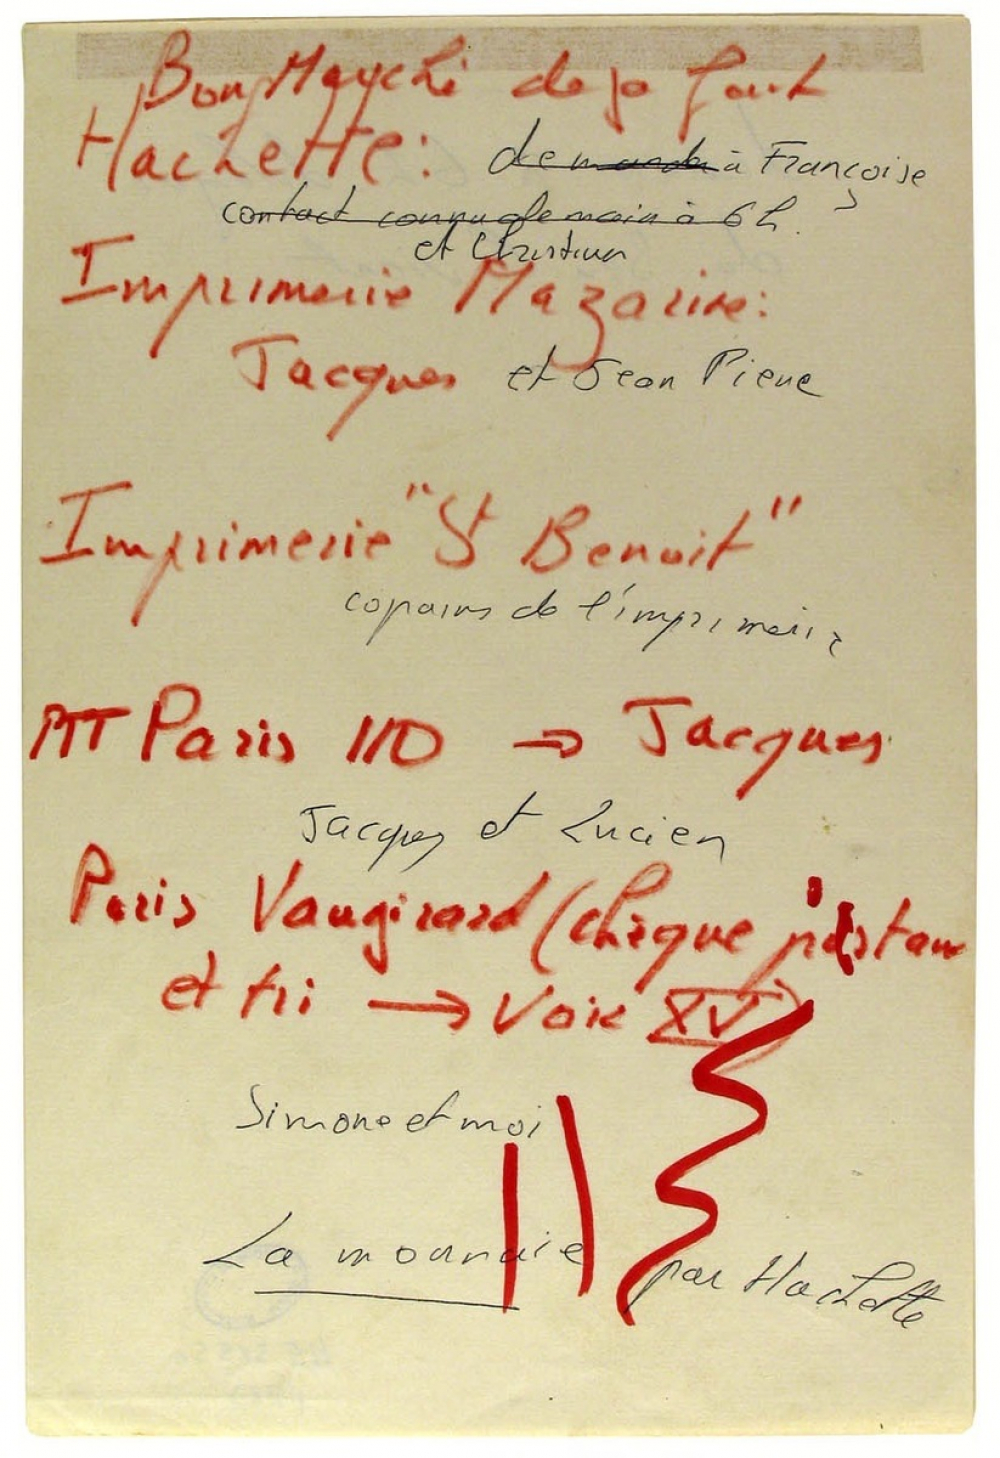 Bon Marché deja fait
Hachette: demande à Françoise
contact connu demain à 6h.
et Christian
Imprimerie Mazarine:
Jacques et Jean Pierre
Imprimerie "St Benoit"
copains de l'imprimerie
PTT Paris 110 → Jacques
Jacques et Lucien
Paris Vaugirard (chèque postaux
et tri → Voie XV)
Simone et moi
La monnaie par Hachette